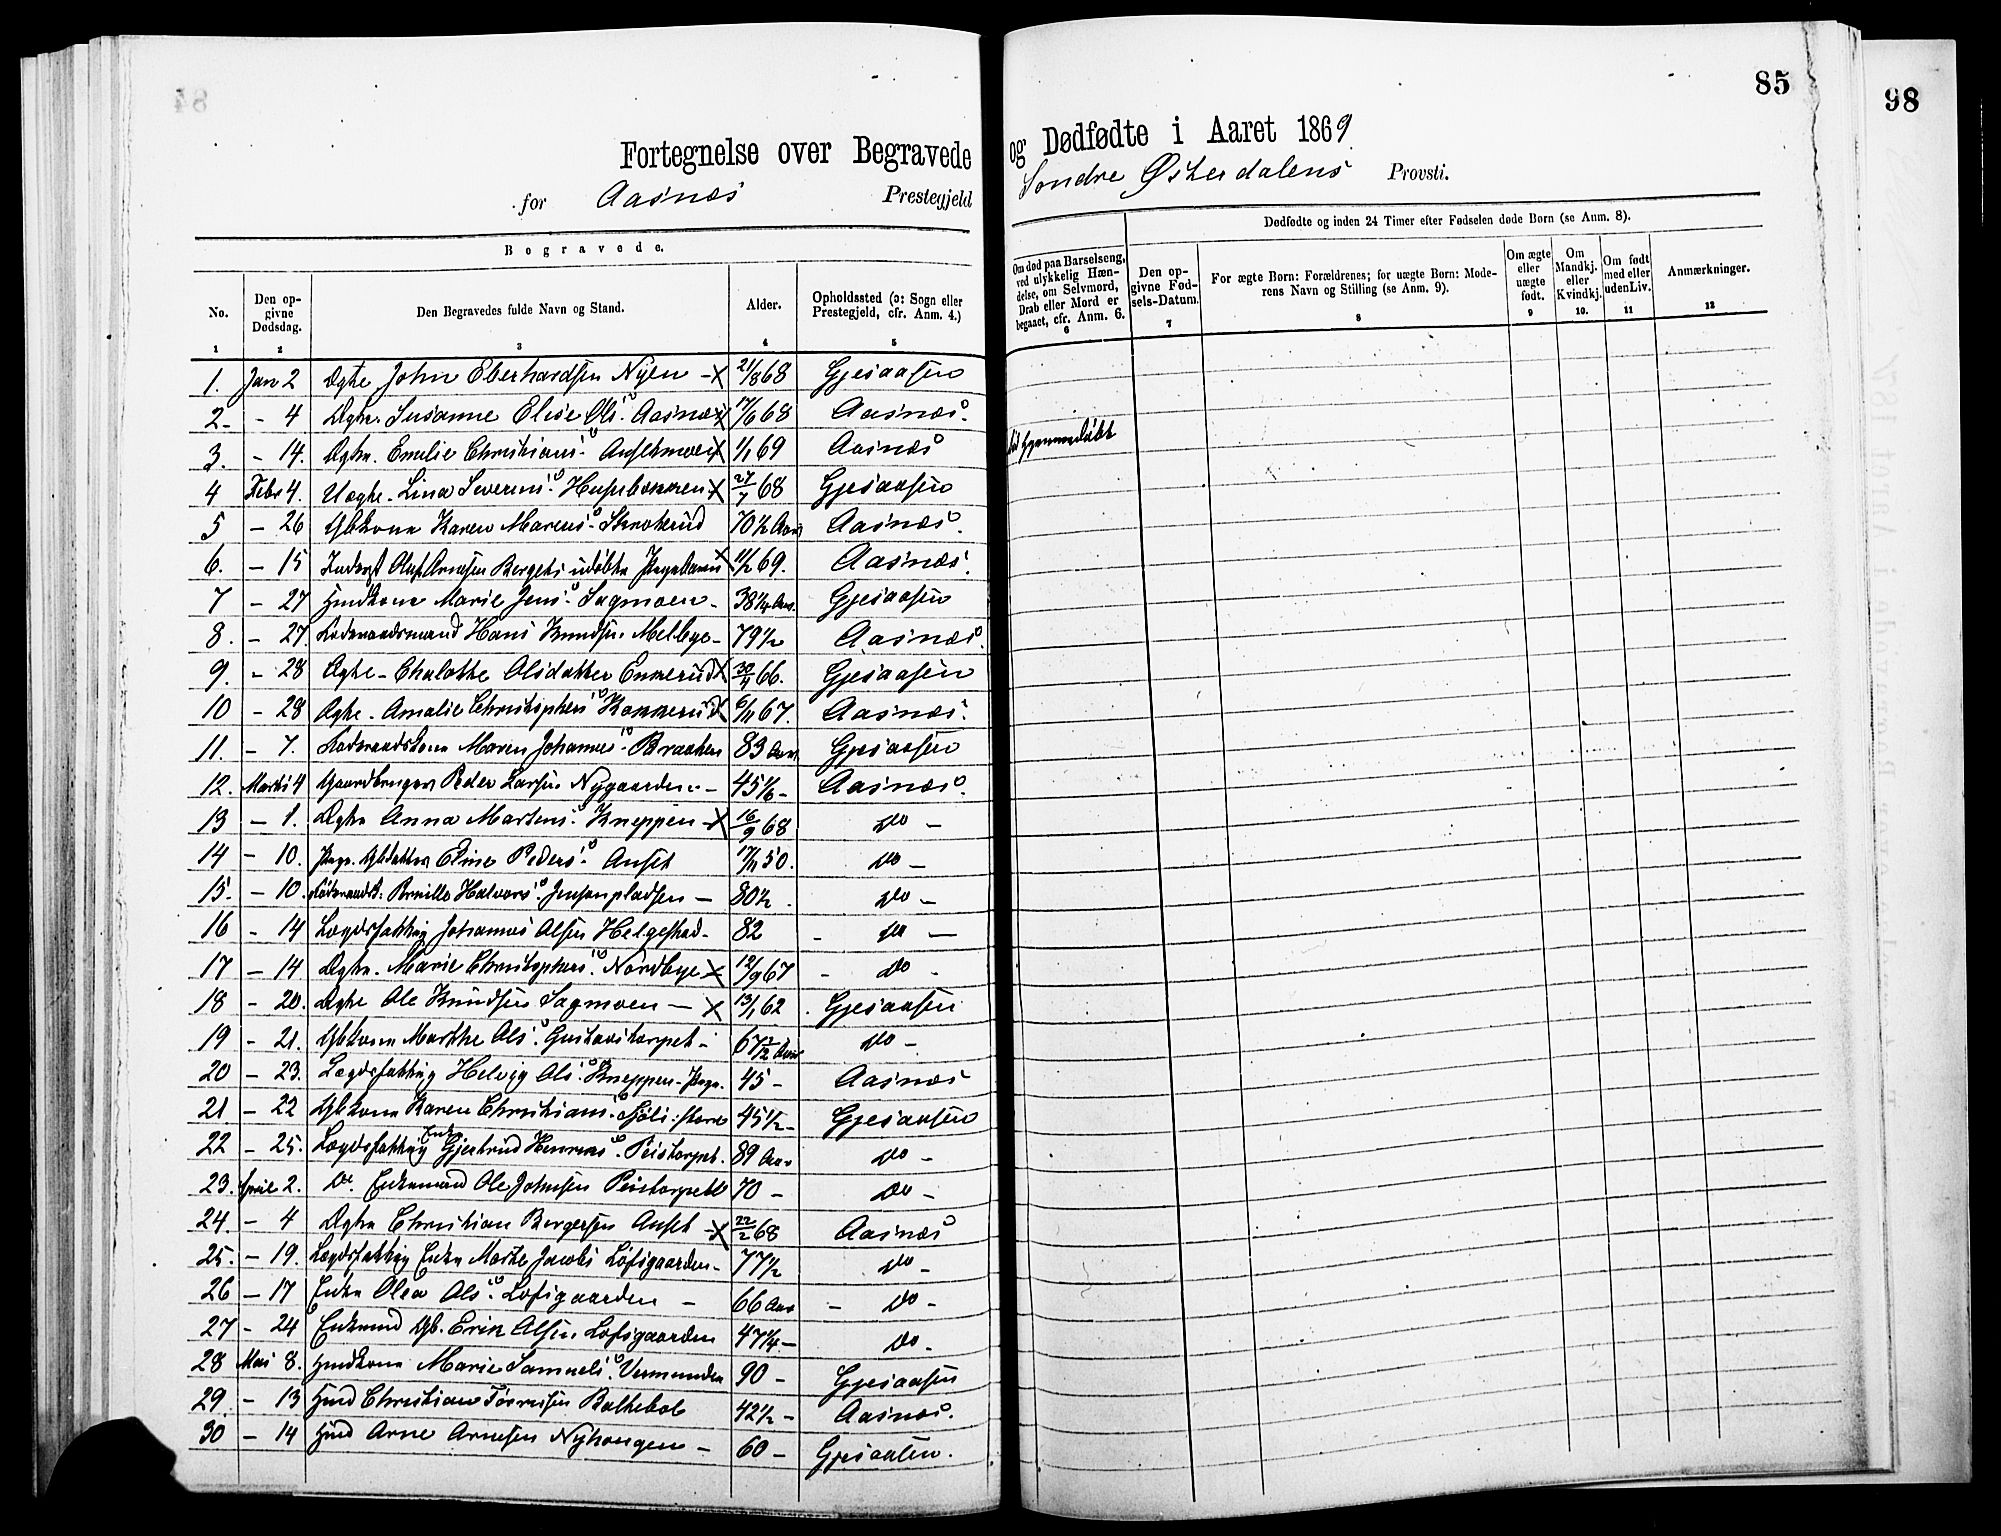 84
85
98
Fortegnelse over Begravede og Dødfødte i Aaret 1869
for Aasnæs Prestegjeld Søndre Østerdalens Provsti.
Begravede.
Dødfødte og inden 24 Timer efter Fødselen døde Børn (se Anm. 8).
No.
Den opgivne Dødsdag.
Den Begravedes fulde Navn og Stand.
Alder.
Opholdssted (ɔ: Sogn eller Prestegjeld, cfr. Anm. 4.)
Om død paa Barselseng, ved ulykkelig Hændelse, om Selvmord, Drab eller Mord er begaaet, cfr. Anm. 6.
Den opgivne Fødsels-Datum.
For ægte Børn: Forældrenes; for uægte Børn: Moderens Navn og Stilling (se Anm. 9).
Om ægte eller uægte født.
Om Mandkj. eller Kvindkj.
Om født med eller uden Liv.
Anmærkninger.
1 2 3 4 5 6 7 8 9 10. 11 12
1. Jan 2 Ægte John Eberhardsen Nyen 21/8 68 Gjesaasen
2 - 4 Ægte. Susanne Elise Ols. Aasnæs 68 Aasnæs.
3. - 14. Ægte. Emilie Christians. 1/1 69 Aasnæs
4 Febr 4. Uægte. Lina Severens. 27/7 68 Gjesaasen
5 - 26 Gbkone Karen Marens. 70½ Aar Aasnæs.
6. - 15 11/2 69. Aasnæs.
7 - 27 Hmdkone Marie Jens. Sagmoen 38¼ Aar. Gjesaasen
8. - 27. Føderaadsmand Hans Knudsen Melbye 79½ Aasnæs.
9. - 28 Ægte - Chalotte Olsdatter 30/4 66. Gjesaasen
10 - 28 Ægte. Amalie Christophers. 6/11 67. Aasnæs.
11. - 7. Føderaadskone Maren Johannes. Braaten 83 Aar Gjesaasen
12. Marts 4 Gaardbruger Peder Larsen Nygaarden 45 Aasnæs.
13 - 1. Ægte Anna Martens. Kneppen 16/9 68 Do -
14 - 10. Eline Peders. Anset 17/11 50. Do -
15. - 10. Pernille Halvors. Jensenpladsen 80½ Do -
16 - 14 Lægdsfattig Johannes Olsen Helgestad 82 Do -
17 - 14 Ægte. Marie Christophers. Nordbye 12/9 67 Do -
18 - 20. Ægte Ole Knudsen Sagmoen 13/1 62 Gjesaasen
19 - 21. Gbkone Marthe Ols. Gustavstorpet 67½ Aar Do -
20 - 23. Lægdsfattig Helvig Ols. Kneppen 45 - Aasnæs
21 - 22 Gbkone Karen Christians. 45½ - Gjesaasen
22 - 25. Lægdsfattig Enke Gjertrud Henriks. Peistorpet. 89 Aar Do -
23. April 2. Do. Enkemand Ole Johnsen Peistorpet 70 - Do -
24. - 4 Ægte Christian Bergersen Anset 22/2 68 Aasnæs
25. - 19. Lægdsfattig Enke Marte Jacobs Löfsgaarden 77½ Do -
26 - 17 Enke Olea Ols. Löfsgaarden 66 Aar Do -
27 - 24 Enkemd Gb. Erik Olsen Löfsgaarden 47¼ - Do -
28 Mai 8. Hmdkone Marie Samuels. Vermunden 90 - Gjesaasen
29. - 13 Hmd Christian 42½ - Aasnæs.
30 - 14 Hmd Arne Arnesen 60 - Gjesaasen.